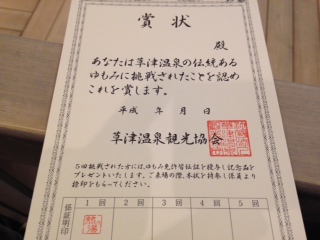 賞状
殿
あなたは草津温泉の伝統ある
ゆもみに挑戦されたことを認め
これを賞します。
平成　年　月　日
草津温泉観光協会
5回挑戦された方には、ゆもみ免許皆伝証を授与し記念品を
プレゼントいたします。ご来場の際、本状を持参し係員より
検印をもらってください。
係証明印
1回 2回 3回 4回 5回
熱湯